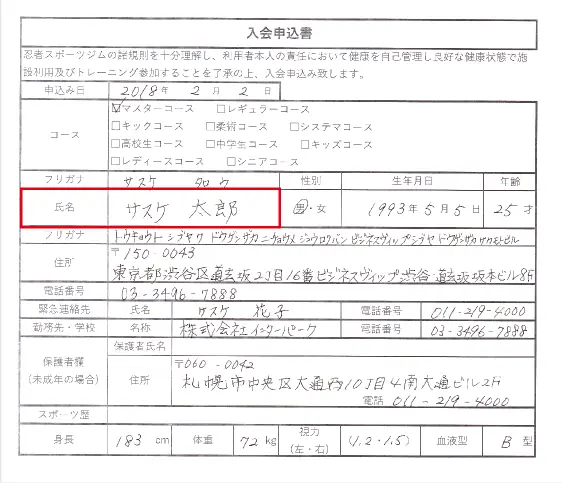 入会申込書
忍者スポーツジムの諸規則を十分理解し、利用者本人の責任において健康を自己管理し良好な健康状態で施
設利用及びトレーニング参加することを了承の上、入会申込み致します。
申込み日 2018 年 2 月 2 日
コース
☑マスターコース □レギュラーコース
□キックコース □柔術コース □システマコース
□高校生コース □中学生コース □キッズコース
□レディースコース □シニアコース
フリガナ サスケ タロウ 性別 生年月日 年齢
氏名 サスケ 太郎 男・女 1993年5月5日 25才
フリガナ トウキョウト シブヤク ドウゲンザカ ニチョウメ ジュウロクバン ビジネスヴィップシブヤ ドウゲンザカサカモトビル
住所 〒150-0043
東京都渋谷区道玄坂2丁目16番ビジネスヴィップ渋谷道玄坂坂本ビル8F
電話番号 03-3496-7888
緊急連絡先 氏名 サスケ 花子 電話番号 011-219-4000
勤務先・学校 名称 株式会社インターパーク 電話番号 03-3496-7888
保護者欄
(未成年の場合)
保護者氏名
住所 〒060-0042
札幌市中央区大通西10丁目4南大通ビル2F
電話 011-219-4000
スポーツ歴
身長 183 cm 体重 72 kg 視力
(左・右) (1.2・1.5) 血液型 B 型